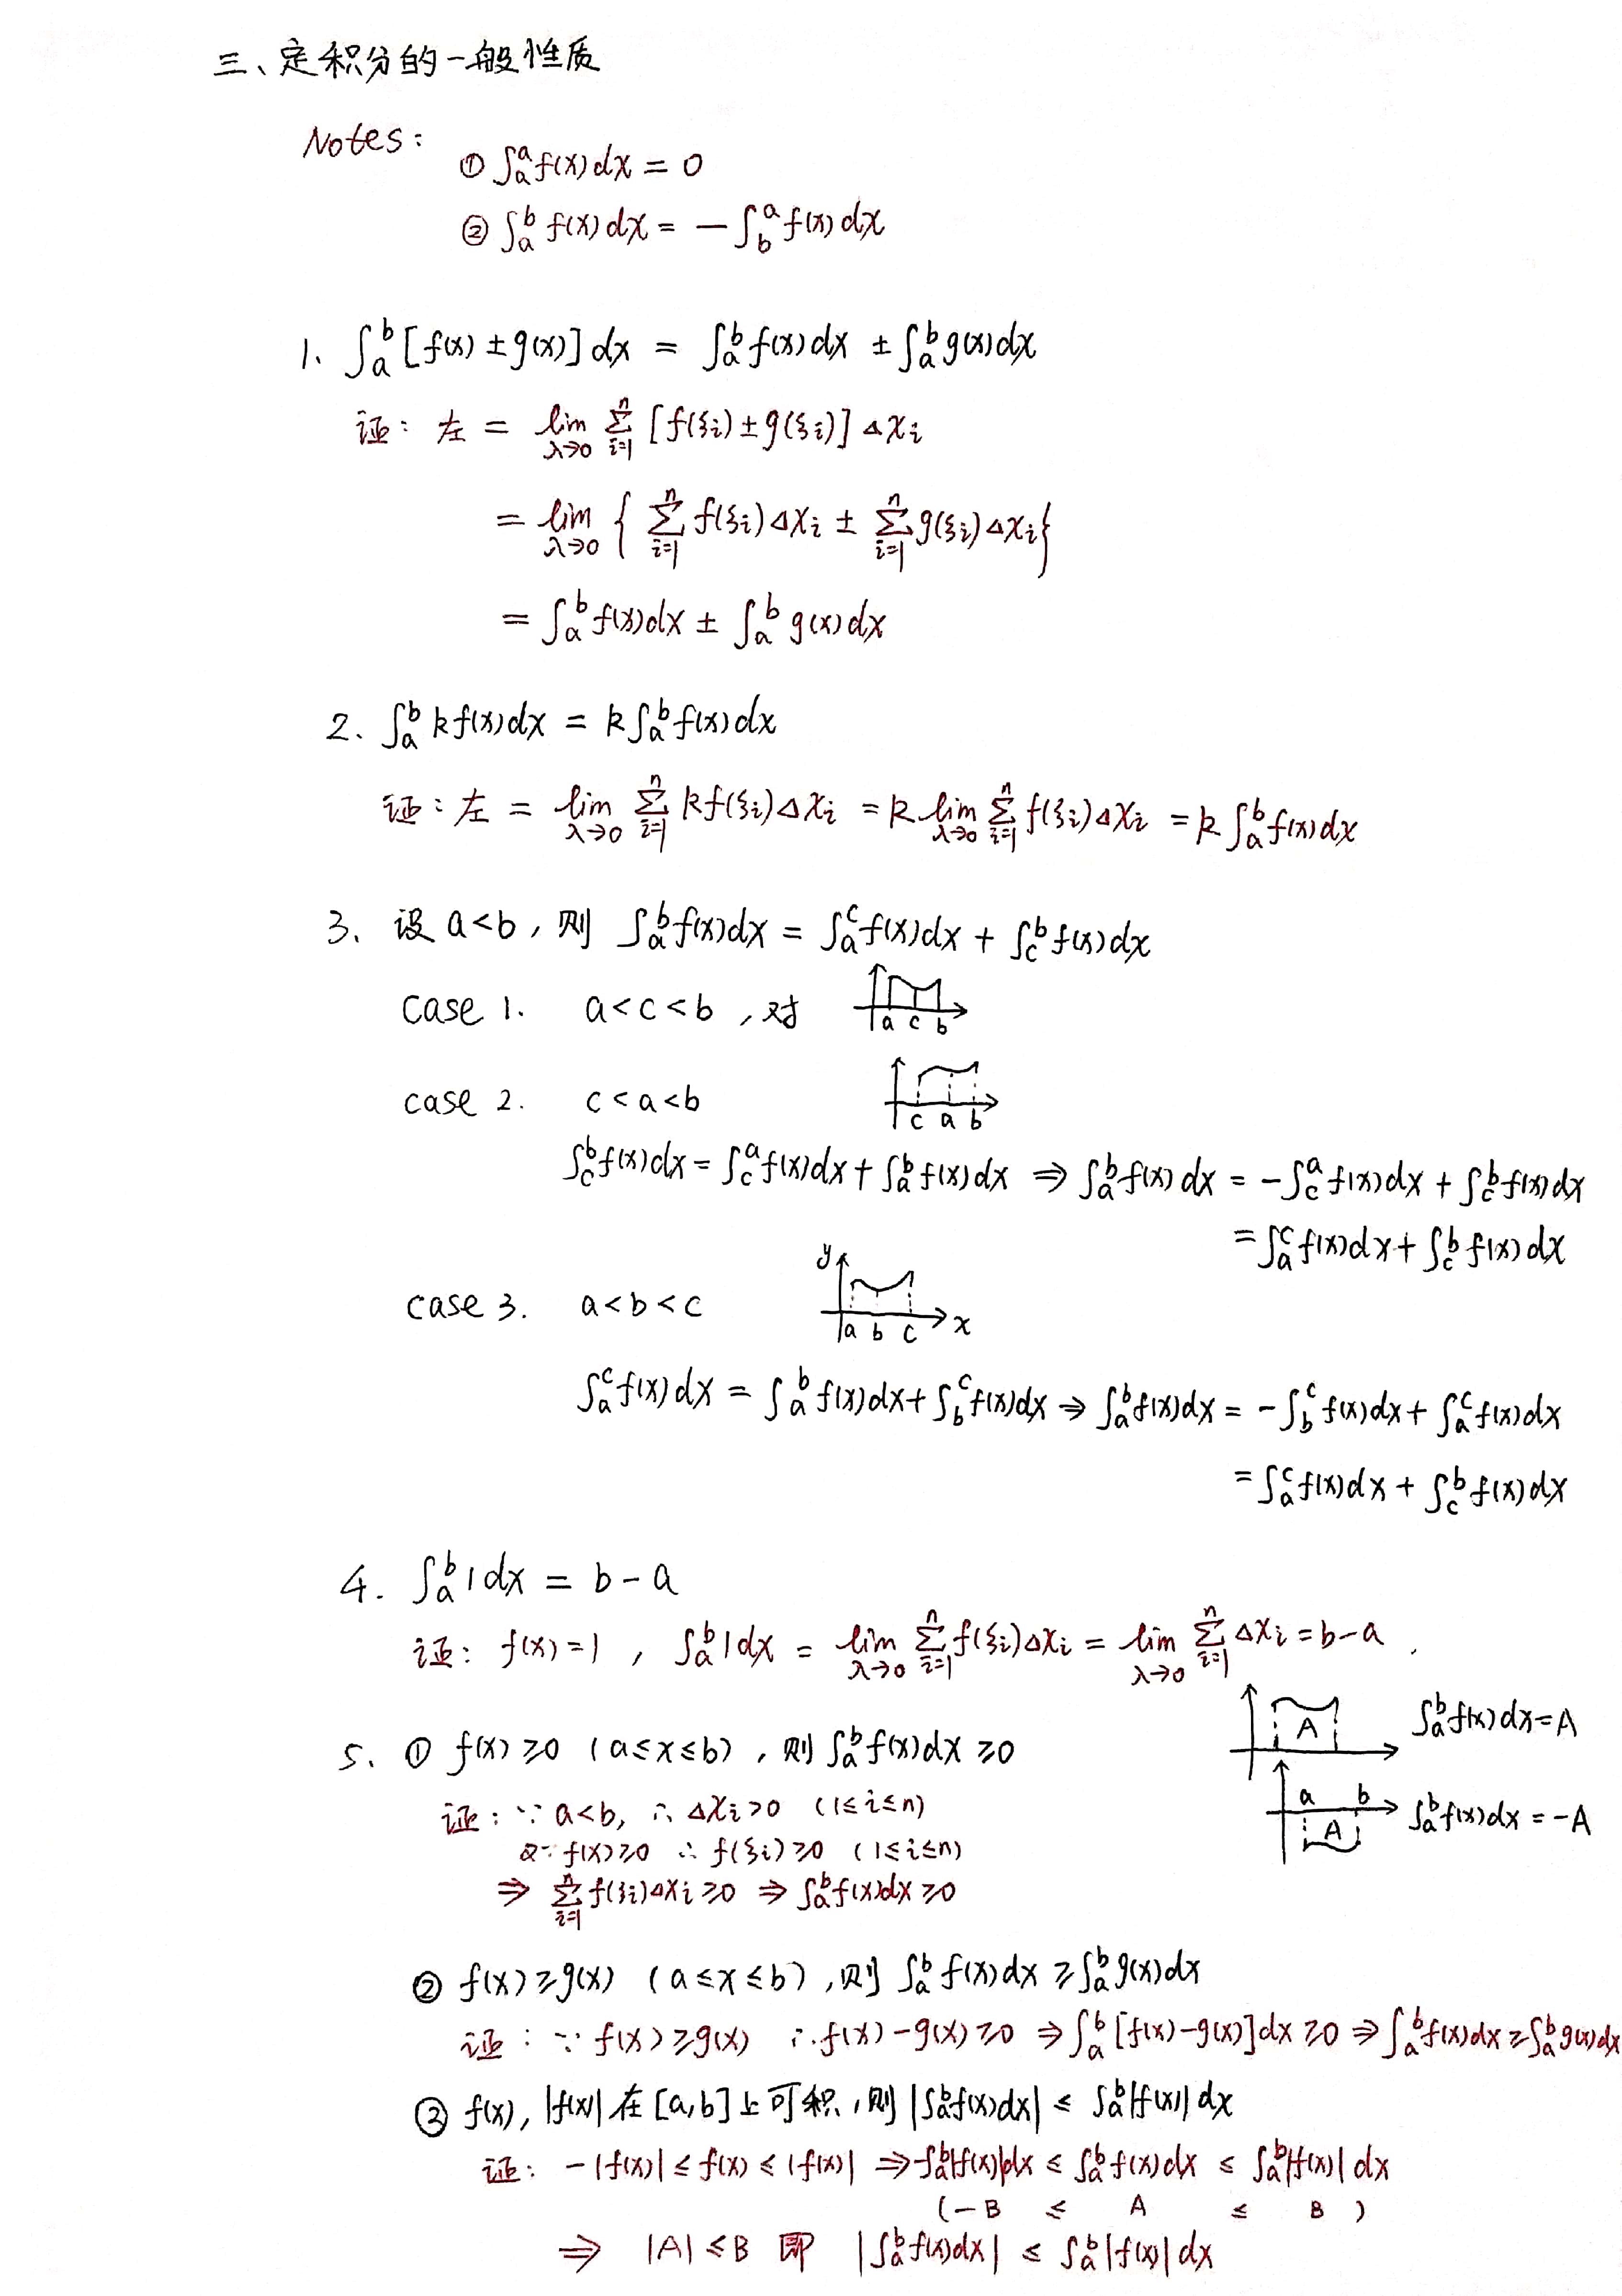 三、定积分的一般性质
Notes:
① ∫_a^a f(x)dx = 0
② ∫_a^b f(x)dx = -∫_b^a f(x)dx
1. ∫_a^b [f(x) ± g(x)]dx = ∫_a^b f(x)dx ± ∫_a^b g(x)dx
证: 左 = lim_{λ→0} ∑_{i=1}^n [f(ξi) ± g(ξi)] Δxi
= lim_{λ→0} { ∑_{i=1}^n f(ξi)Δxi ± ∑_{i=1}^n g(ξi)Δxi }
= ∫_a^b f(x)dx ± ∫_a^b g(x)dx
2. ∫_a^b kf(x)dx = k∫_a^b f(x)dx
证: 左 = lim_{λ→0} ∑_{i=1}^n kf(ξi)Δxi = k lim_{λ→0} ∑_{i=1}^n f(ξi)Δxi = k∫_a^b f(x)dx
3. 设 a<b, 则 ∫_a^b f(x)dx = ∫_a^c f(x)dx + ∫_c^b f(x)dx
case 1. a<c<b, 对
a c b
case 2. c<a<b
c a b
∫_c^b f(x)dx = ∫_c^a f(x)dx + ∫_a^b f(x)dx ⇒ ∫_a^b f(x)dx = -∫_c^a f(x)dx + ∫_c^b f(x)dx
= ∫_a^c f(x)dx + ∫_c^b f(x)dx
case 3. a<b<c
y
a b c x
∫_a^c f(x)dx = ∫_a^b f(x)dx + ∫_b^c f(x)dx ⇒ ∫_a^b f(x)dx = -∫_b^c f(x)dx + ∫_a^c f(x)dx
= ∫_a^c f(x)dx + ∫_c^b f(x)dx
4. ∫_a^b 1dx = b-a
证: f(x)=1, ∫_a^b 1dx = lim_{λ→0} ∑_{i=1}^n f(ξi)Δxi = lim_{λ→0} ∑_{i=1}^n Δxi = b-a
A ∫_a^b f(x)dx = A
5. ① f(x) ≥ 0 (a≤x≤b), 则 ∫_a^b f(x)dx ≥ 0
a b
A ∫_a^b f(x)dx = -A
证: ∵ a<b, ∴ Δxi>0 (1≤i≤n)
又∵ f(x)≥0 ∴ f(ξi)≥0 (1≤i≤n)
⇒ ∑_{i=1}^n f(ξi)Δxi ≥ 0 ⇒ ∫_a^b f(x)dx ≥ 0
② f(x) ≥ g(x) (a≤x≤b), 则 ∫_a^b f(x)dx ≥ ∫_a^b g(x)dx
证: ∵ f(x) ≥ g(x) ∴ f(x)-g(x) ≥ 0 ⇒ ∫_a^b [f(x)-g(x)]dx ≥ 0 ⇒ ∫_a^b f(x)dx ≥ ∫_a^b g(x)dx
③ f(x), |f(x)| 在 [a,b] 上可积, 则 |∫_a^b f(x)dx| ≤ ∫_a^b |f(x)|dx
证: -|f(x)| ≤ f(x) ≤ |f(x)| ⇒ -∫_a^b |f(x)|dx ≤ ∫_a^b f(x)dx ≤ ∫_a^b |f(x)|dx
(-B ≤ A ≤ B)
⇒ |A| ≤ B 即 |∫_a^b f(x)dx| ≤ ∫_a^b |f(x)|dx